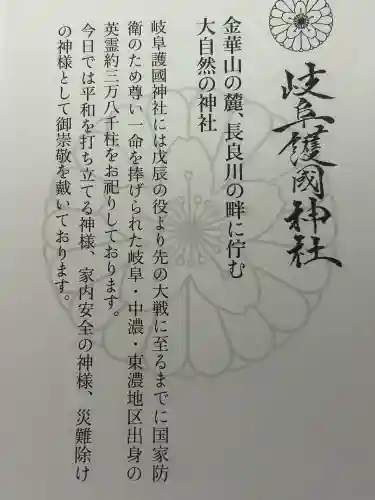 岐阜護國神社
金華山の麓、長良川の畔に佇む
大自然の神社
岐阜護國神社には戊辰の役より先の大戦に至るまでに国家防
衛のため尊い一命を捧げられた岐阜・中濃・東濃地区出身の
英霊約三万八千柱をお祀りしております。
今日では平和を打ち立てる神様、家内安全の神様、災難除け
の神様として御崇敬を戴いております。